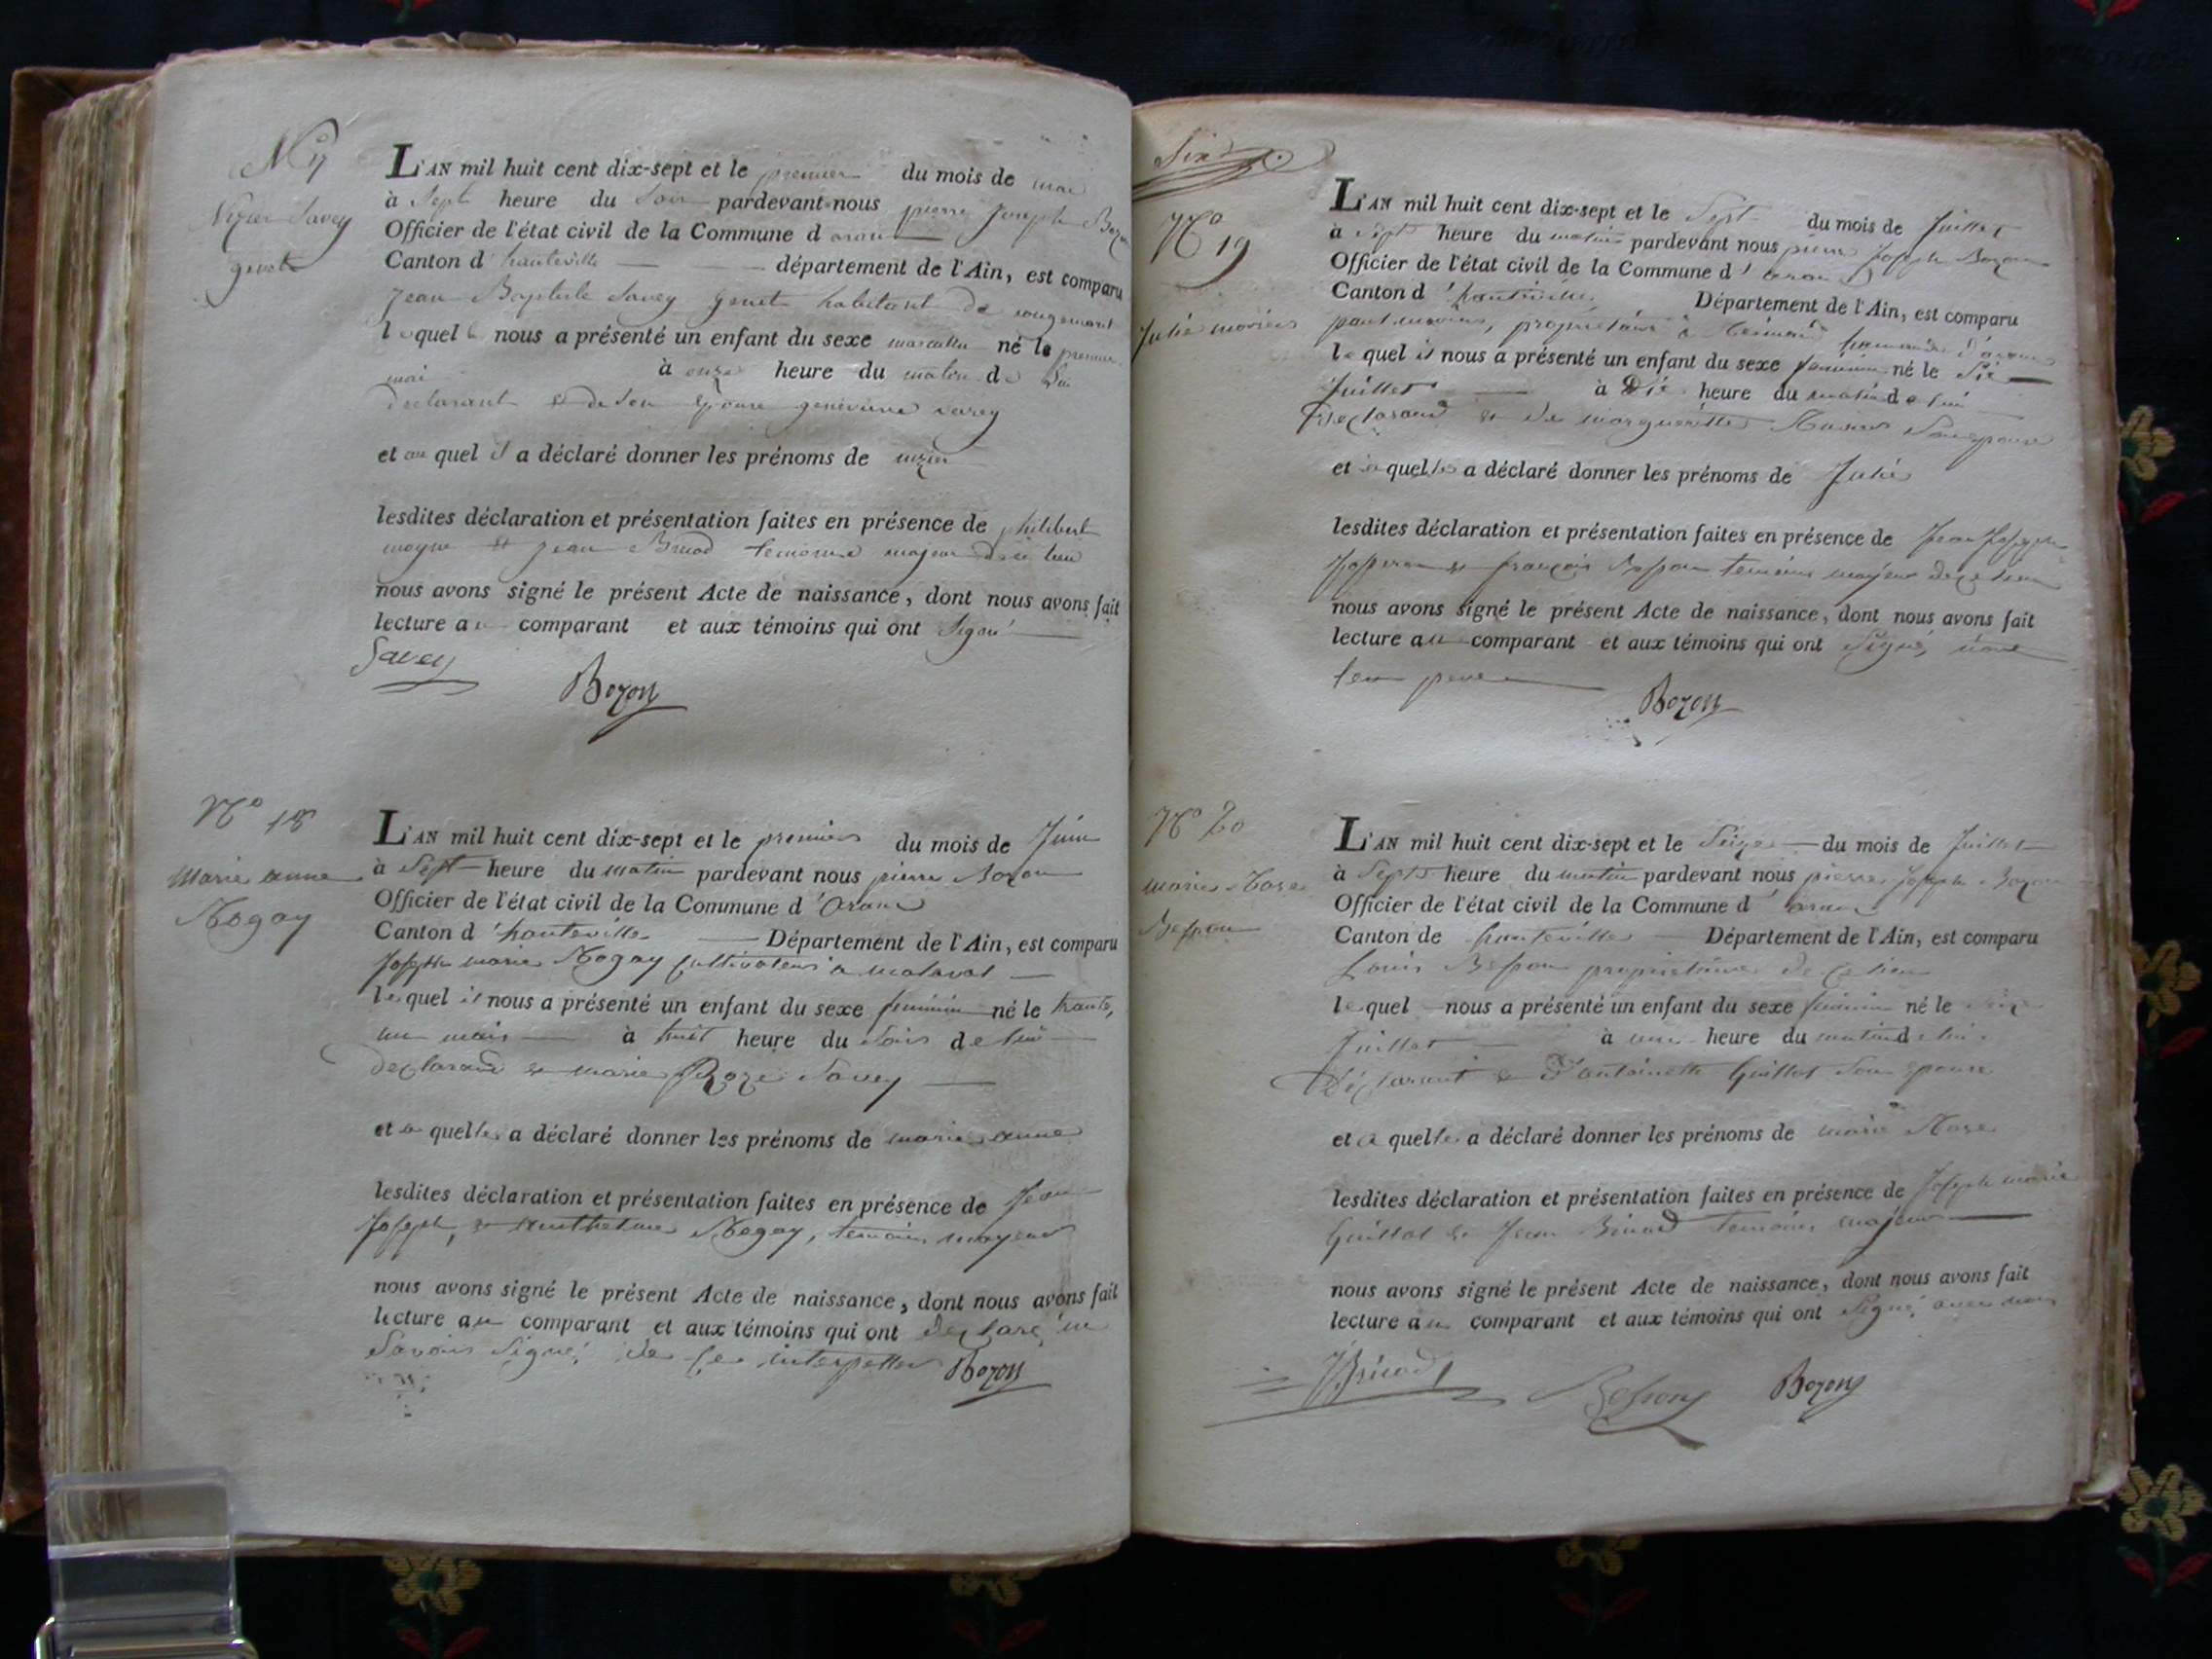 N° 17
Nizier Savey
genet
L'AN mil huit cent dix-sept et le premier du mois de mai
à Sept heure du Soir pardevant nous pierre Joseph Bozon
Officier de l'état civil de la Commune d aran
Canton d' hauteville département de l'Ain, est comparu
Jean Baptiste Savey genet habitant de rougemont
lequel nous a présenté un enfant du sexe masculin né le premier
mai à onze heure du matin de lui
declarant et de son Epouse genevieve savey
et au quel il a déclaré donner les prénoms de nizier
lesdites déclaration et présentation faites en présence de philibert
moyne et jean Binod temoins majeur de ce lieu
nous avons signé le présent Acte de naissance, dont nous avons fait
lecture au comparant et aux témoins qui ont Signé
Savey
Bozon
N° 18
Marie anne
Nogay
L'AN mil huit cent dix-sept et le premier du mois de Juin
à Sept heure du matin pardevant nous pierre Bozon
Officier de l'état civil de la Commune d'aran
Canton d'hauteville Département de l'Ain, est comparu
Joseph marie Nogay cultivateur a malaval
lequel il nous a présenté un enfant du sexe feminin né le trante,
un mais à huit heure du Soir de lui
declarand et marie Roze Savey
et a quelle a déclaré donner les prénoms de marie anne
lesdites déclaration et présentation faites en présence de Jean
Joseph, et Nogay, temoins mayeurs
nous avons signé le présent Acte de naissance, dont nous avons fait
lecture au comparant et aux témoins qui ont declaré ne
Savoir Signé, de ce interpellés Bozon
Six
N° 19
Julie
L'AN mil huit cent dix-sept et le Sept du mois de Juillet
à sept heure du matin pardevant nous pierre Joseph Bozon
Officier de l'état civil de la Commune d' aran
Canton d'hauteville Département de l'Ain, est comparu
paul propriétaire à d'aran
lequel il nous a présenté un enfant du sexe feminin né le Six
Juillet à Dix heure du matin de lui
Declarand et de margueritte Son epouse
et a quelle a déclaré donner les prénoms de Julie
lesdites déclaration et présentation faites en présence de Jean Joseph
et françois Besson temoins mayeur de ce lieu
nous avons signé le présent Acte de naissance, dont nous avons fait
lecture au comparant et aux témoins qui ont Signé,
Bozon
N° 20
marie Rose
Besson
L'AN mil huit cent dix-sept et le Seize du mois de Juillet
à Sept heure du matin pardevant nous pierre Joseph Bozon
Officier de l'état civil de la Commune d' aran
Canton de hauteville Département de l'Ain, est comparu
Louis Besson proprietaire de ce lieu
lequel nous a présenté un enfant du sexe feminin né le Seize
Juillet à une heure du matin de lui
Déclarant et D'antoinette Guillot Son epouse
et a quelle a déclaré donner les prénoms de marie Rose
lesdites déclaration et présentation faites en présence de Joseph marie
Guillot et Jean Binod temoins majeur
nous avons signé le présent Acte de naissance, dont nous avons fait
lecture au comparant et aux témoins qui ont Signé avec nous
JBinod Besson Bozon